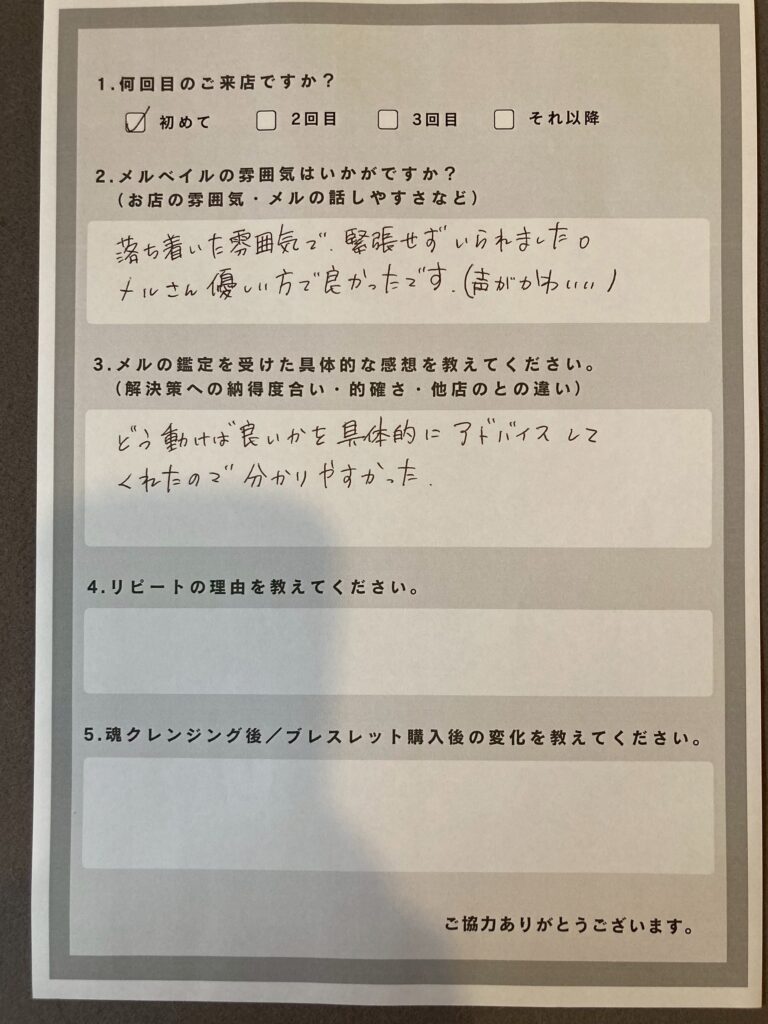 1.何回目のご来店ですか？
☑ 初めて □ 2回目 □ 3回目 □ それ以降
2.メルベイルの雰囲気はいかがですか？
（お店の雰囲気・メルの話しやすさなど）
落ち着いた雰囲気で、緊張せずいられました。
メルさん優しい方で良かったです.(声がかわいい)
3.メルの鑑定を受けた具体的な感想を教えてください。
（解決策への納得度合い・的確さ・他店のとの違い）
どう動けば良いかを具体的にアドバイスして
くれたので分かりやすかった.
4.リピートの理由を教えてください。
5.魂クレンジング後／ブレスレット購入後の変化を教えてください。
ご協力ありがとうございます。